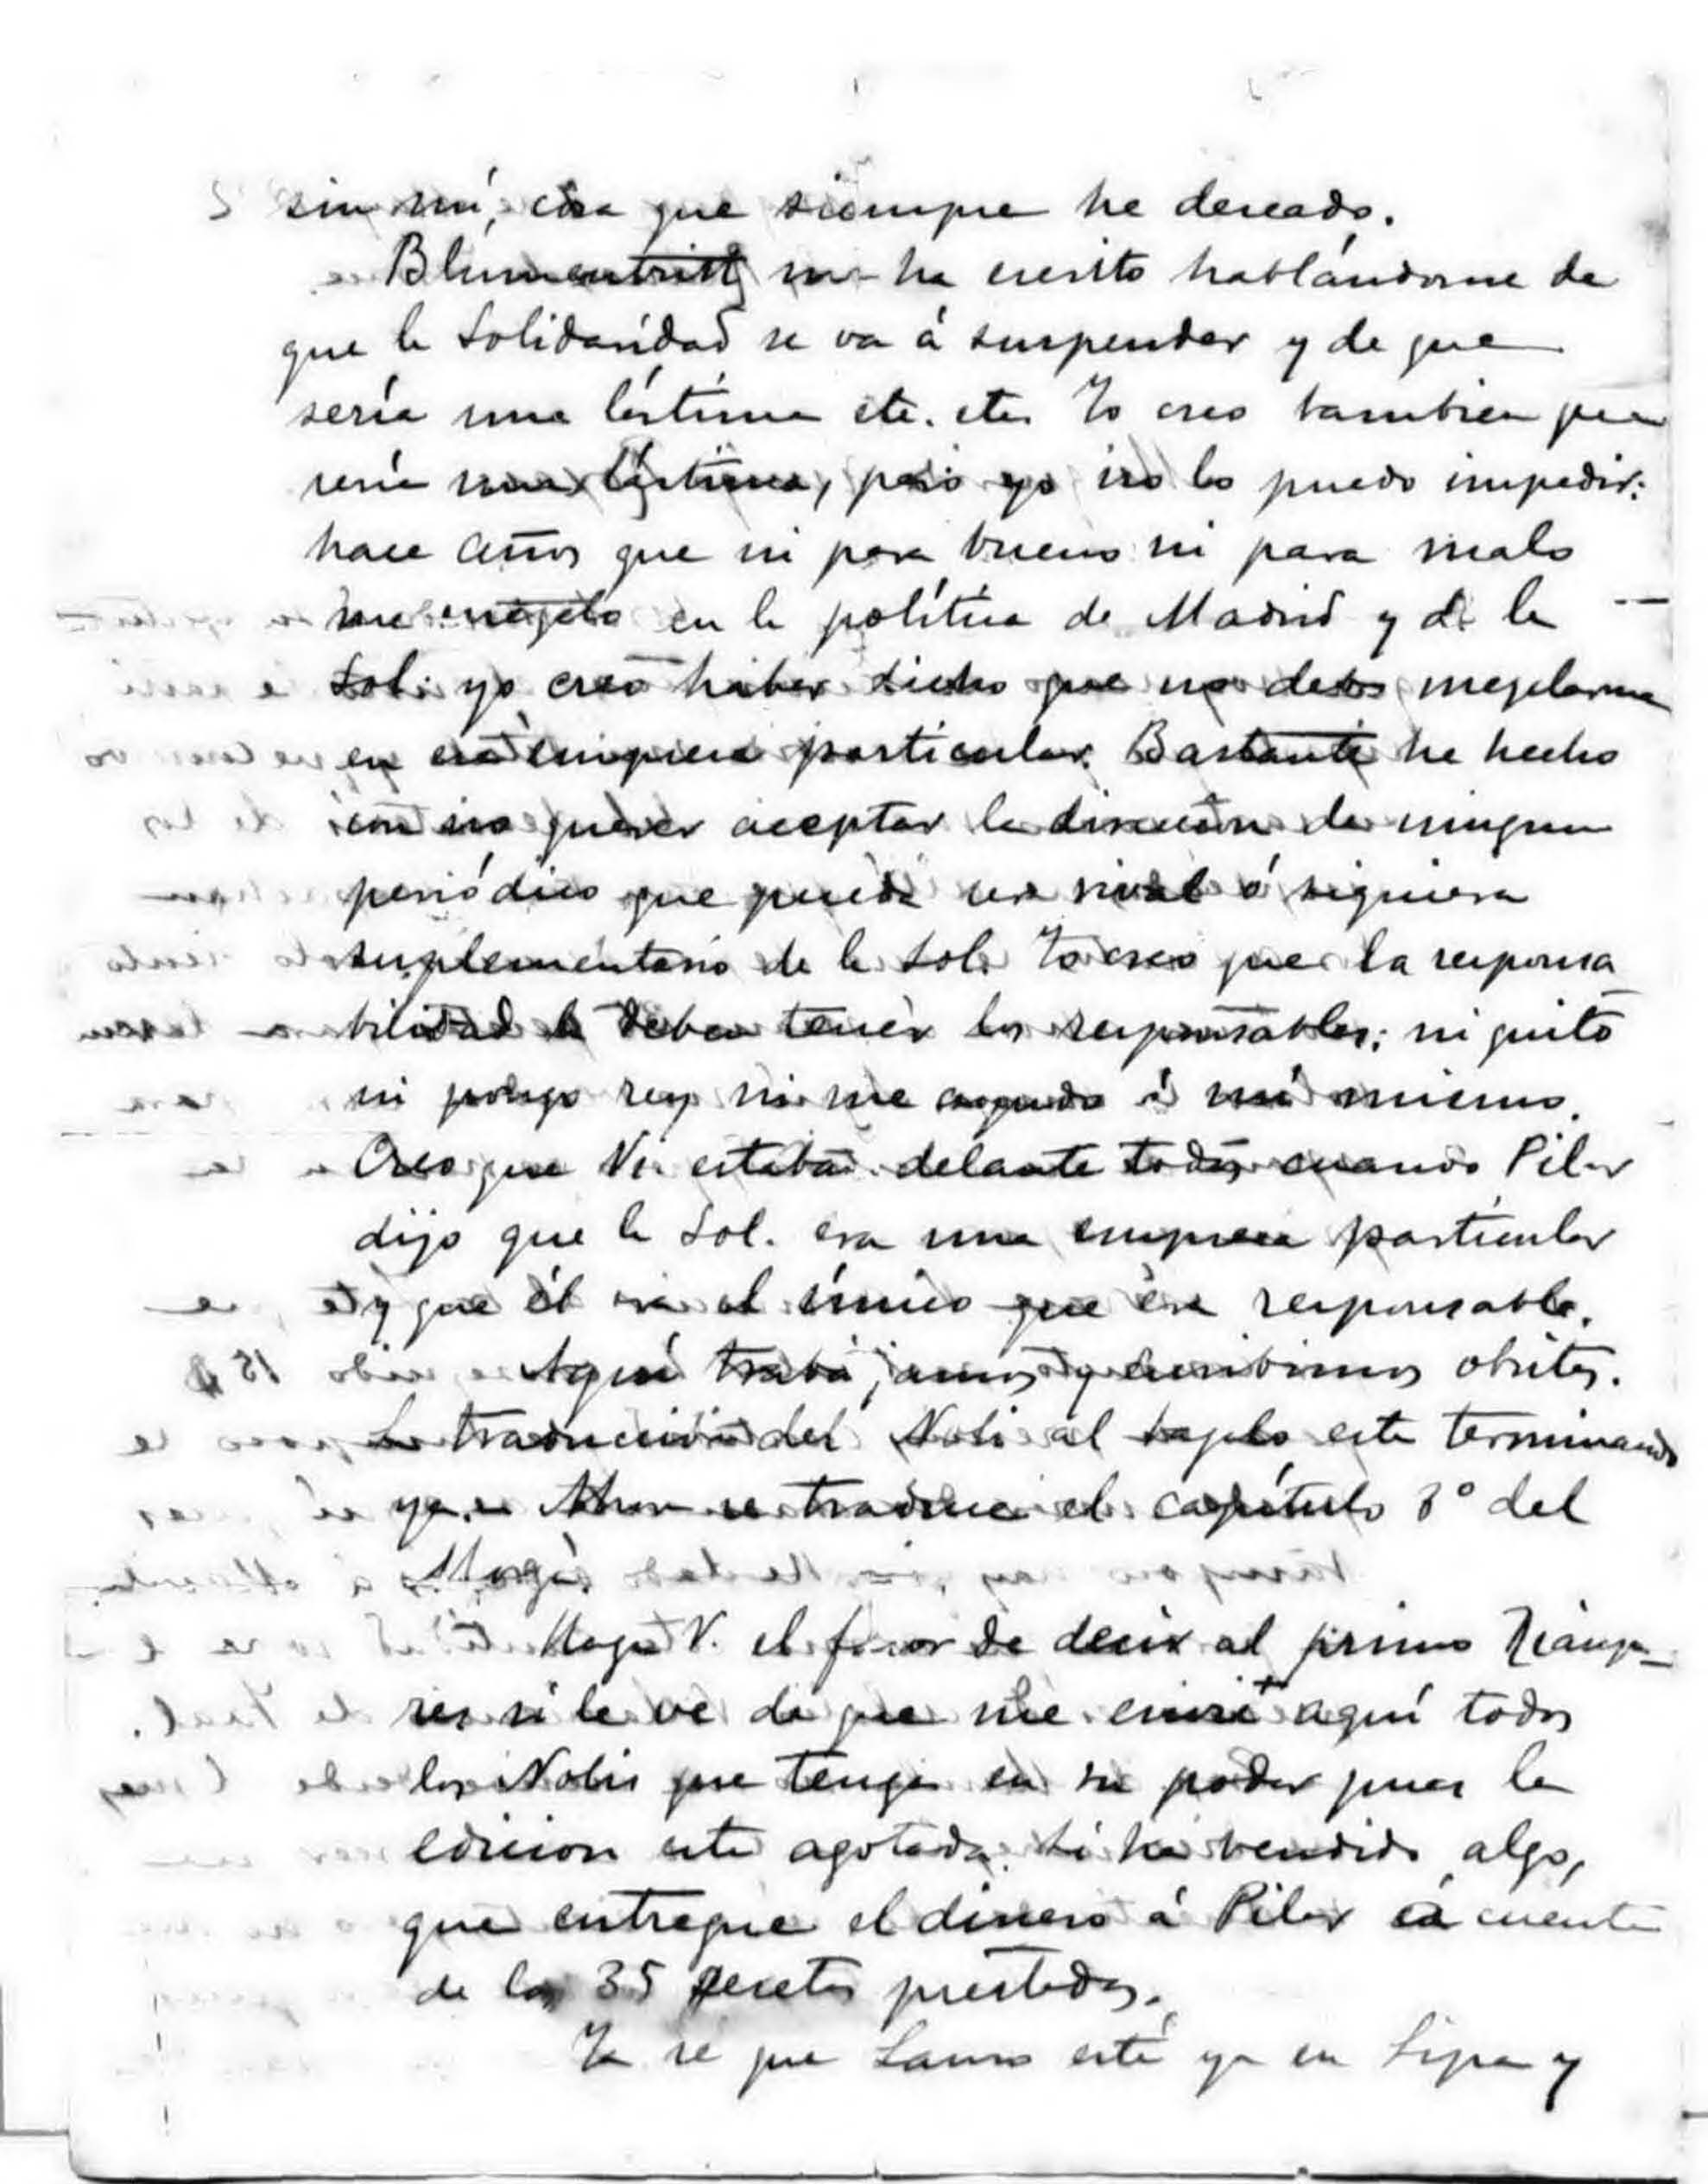 sin mí, cosa que siempre he deseado.
Blumentritt me ha escrito hablándome de
que la Solidaridad se va á suspender y de que
sería una lástima etc. etc. Yo creo tambien que
sería una lástima, pero yo no lo puedo impedir:
hace años que ni para bueno ni para malo
me mezclo en la política de Madrid y de la
Sol: yo creo haber dicho que no debo mezclarme
en esa empresa particular. Bastante he hecho
con no querer aceptar la direccion de ningun
periódico que pueda ser rival ó siquiera
suplementario de la Sol. Yo creo que la responsa
bilidad la deben tener los responsables: ni quito
ni pongo rey ni me ayudo á mí mismo.
Creo que Vs. estaban delante todos cuando Pilar
dijo que la Sol. era una empresa particular
y que él era el único que era responsable.
Aquí trabajamos y escribimos obritas.
La traduccion del Noli al tagalo está terminando
ya. Ahora se traduce el capítulo 3º del
Morga.
Haga V. el favor de decir al primo Riánza-
res si le ve de que me envie aquí todos
los Nolis que tenga en su poder pues la
edicion está agotada. Si ha vendido algo,
que entregue el dinero á Pilar á cuenta
de las 35 pesetas prestadas.
Ya sé que Lauro está ya en Lipa y